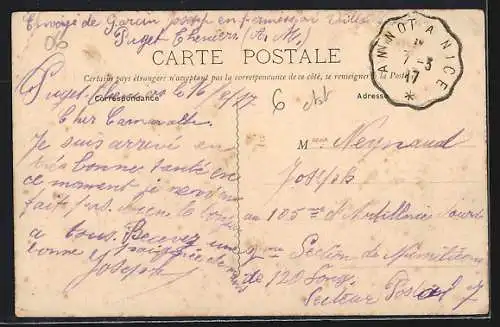 Envoyé de Garcin Joseph en permission à Ville
Puget Theniers (A. M.)
CARTE POSTALE
Certains pays étrangers n'acceptant pas la correspondance de ce côté, se renseigner à la Poste
Correspondance
Adresse
ANNOT A NICE
7-3
17
*
6
Puget Theniers le 16/2/17.
Cher Camarade
Je suis arrivé en
très bonne santé en
ce moment je
fait pas
a tous. Recevez une
bonne poignée de main
Joseph
M Reynaud
Joseph
au 105 me d'Artillerie Lourde
9 me Section de Munitions
de 120 Long.
Secteur Postal 7